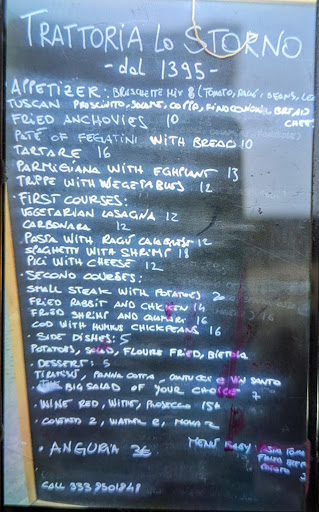 TRATTORIA LO STORNO
- dal 1395 -
APPETIZER: BRUSCHETTE MIX 8 (TOMATO, RAGÚ, BEANS,
TUSCAN PROSCIUTTO, SALAME, COPPA, FINOCCHIONA, BREAD
CHEESE
FRIED ANCHOVIES 10
PATÉ OF FEGATINI WITH BREAD 10
TARTARE 16
PARMIGIANA WITH EGHPLANT 13
TRIPPE WITH WEGETABLES 12
• FIRST COURSES:
VEGETARIAN LASAGNA 12
CARBONARA 12
PASTA WITH RAGÚ 12
SPAGHETTI WITH SHRIMPS 18
PICI WITH CHEESE 12
• SECOND COURSES:
SMALL STEAK WITH POTATOES 20
FRIED RABBIT AND CHICKEN 14
FRIED SHRIMP AND CALAMARI 16
COD WITH HUMMUS CHICKPEANS 16
• SIDE DISHES: 5
POTATOES, SALAD, FLOURE FRIED, BIETOLA
• DESSERT: 5
TIRAMISÚ, PANNA COTTA, CANTUCCI E VIN SANTO
BIG SALAD OF YOUR CHOICE 7
• WINE RED, WITHE, PROSECCO 15
• COVERED 2, WATHER 2, MOKA 2
• ANGURIA 3€
MENU BABY: PASTA POMO
CALL 333 9501848